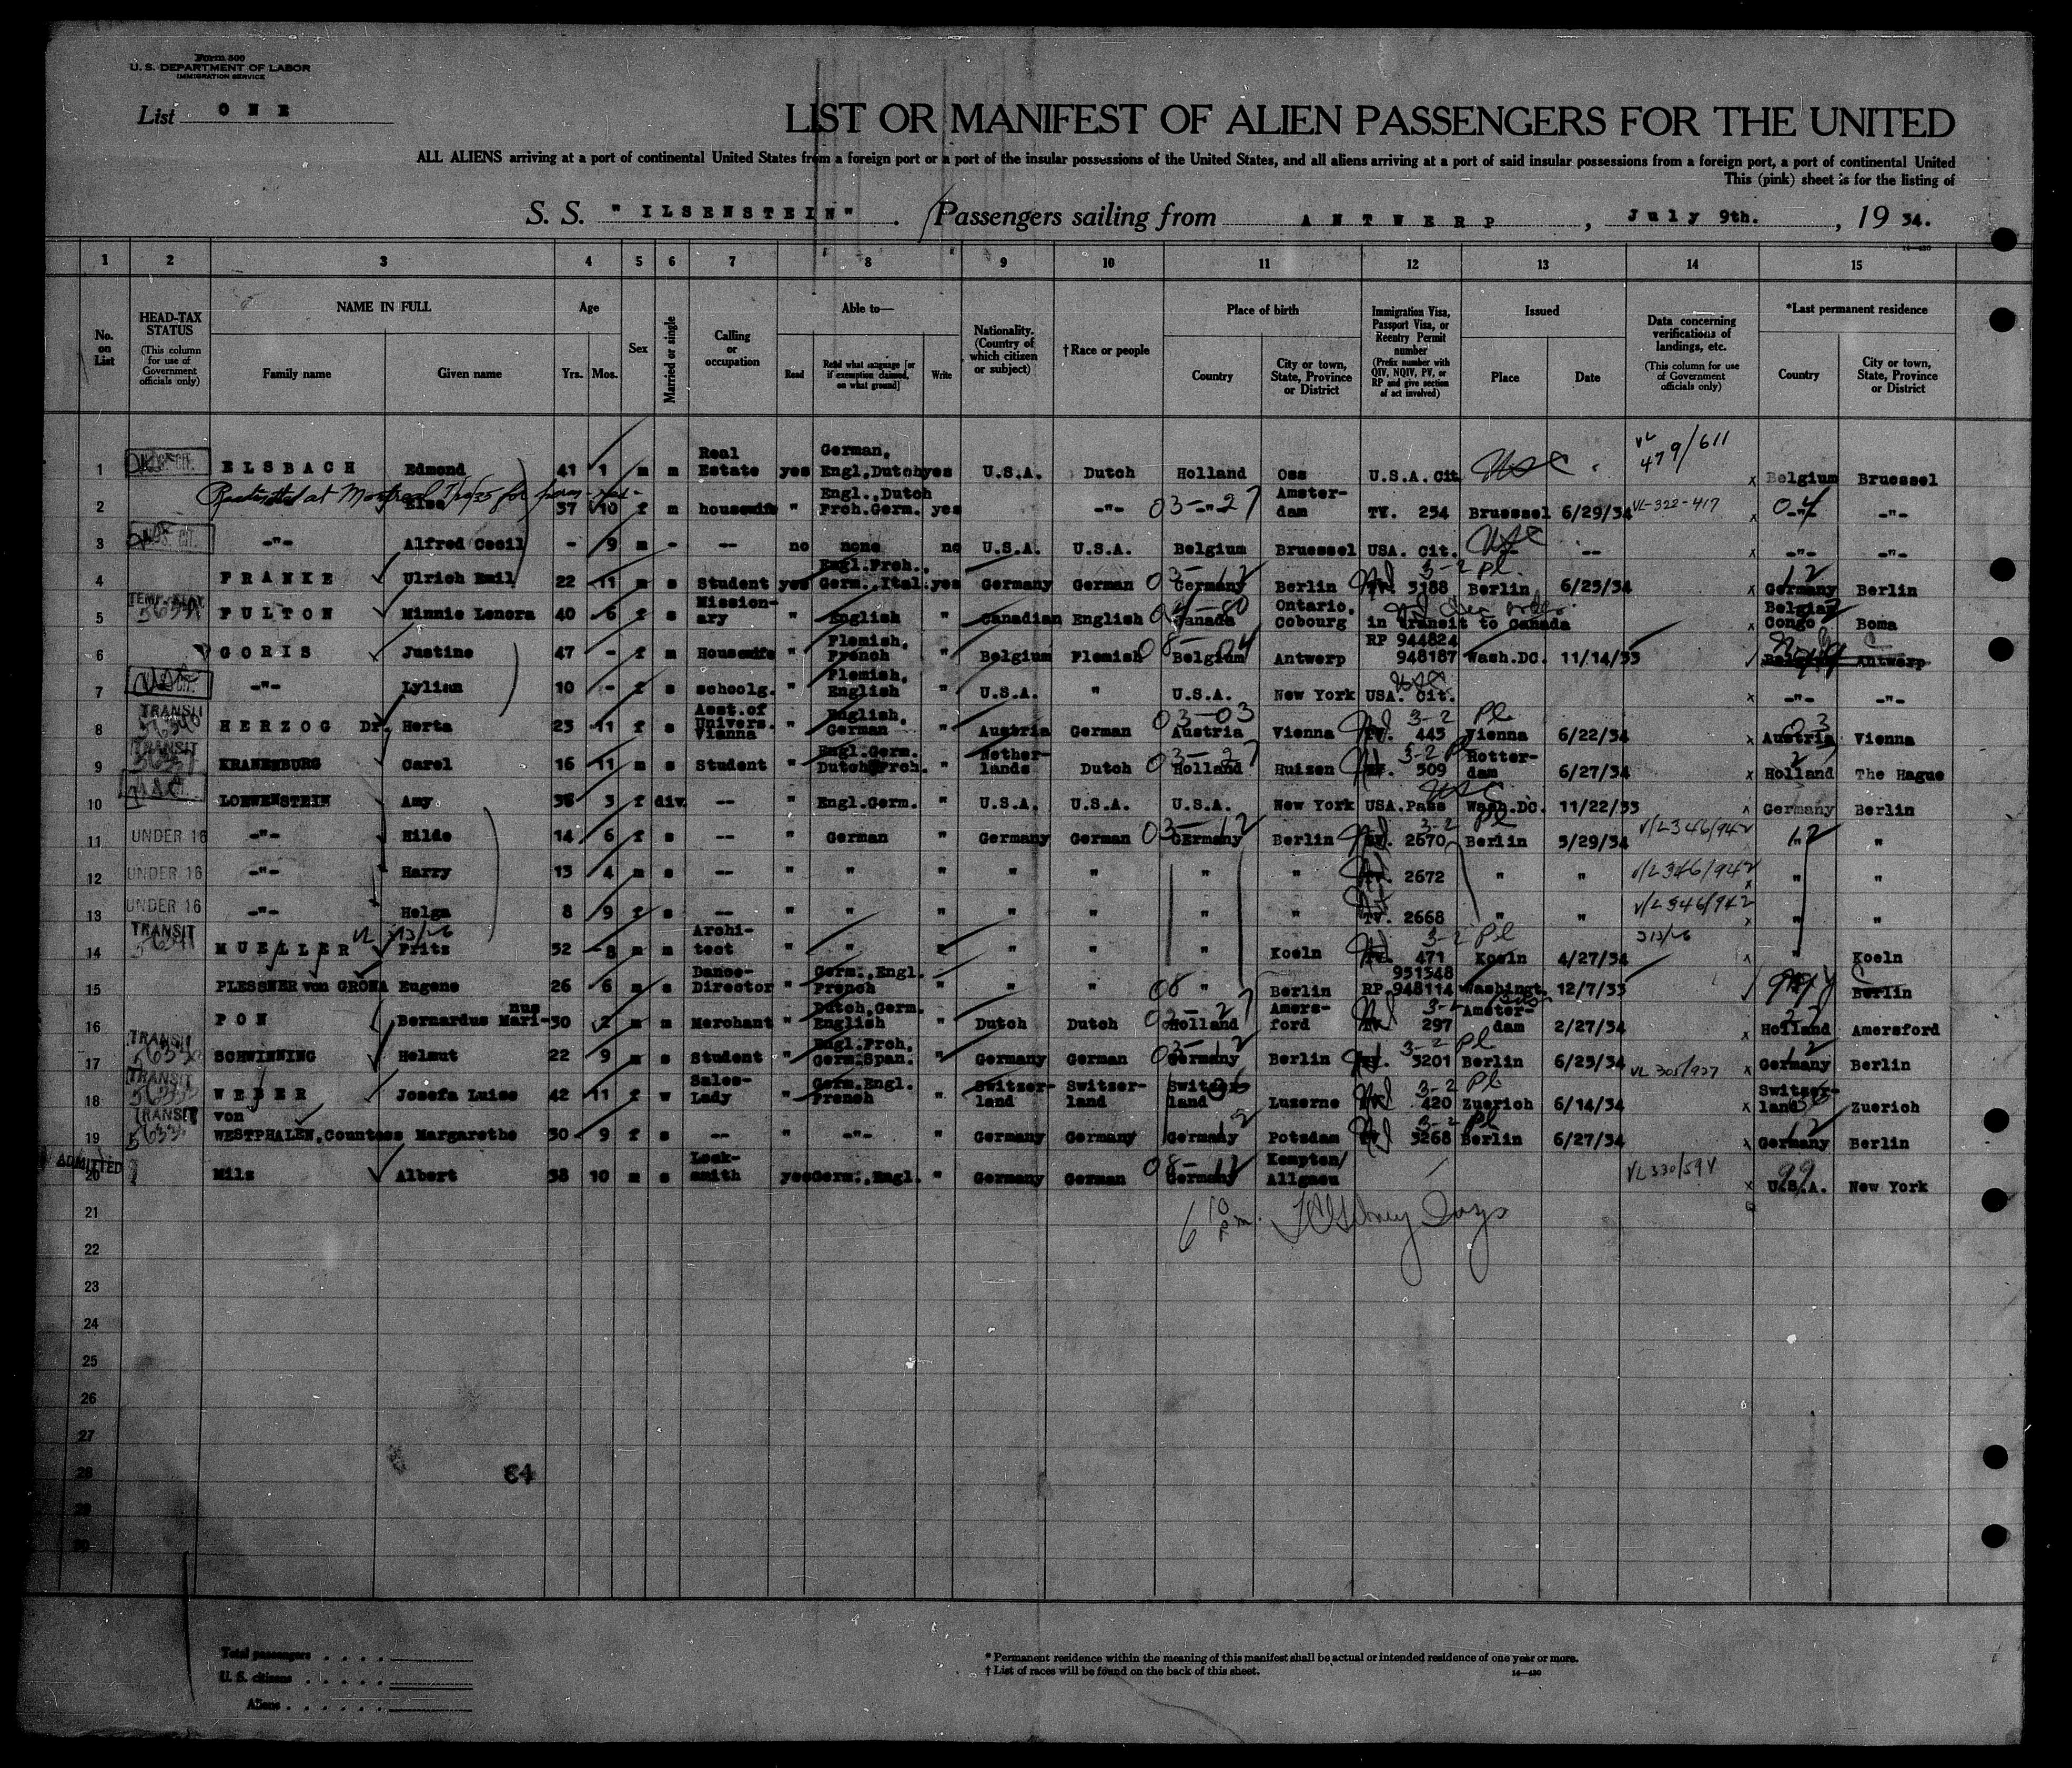 Form 500
U. S. DEPARTMENT OF LABOR
IMMIGRATION SERVICE
List O N E
LIST OR MANIFEST OF ALIEN PASSENGERS FOR THE UNITED
ALL ALIENS arriving at a port of continental United States from a foreign port or a port of the insular possessions of the United States, and all aliens arriving at a port of said insular possessions from a foreign port, a port of continental United
This (pink) sheet is for the listing of
S. S. "ILSENSTEIN". Passengers sailing from A N T W E R P, July 9th., 19 34.
1 2 3 4 5 6 7 8 9 10 11 12 13 14 15
No. on List
HEAD-TAX STATUS (This column for use of Government officials only)
NAME IN FULL Family name Given name
Age Yrs. Mos.
Sex
Married or single
Calling or occupation
Able to— Read Read what language [or if exemption claimed, on what ground] Write
Nationality. (Country of which citizen or subject)
†Race or people
Place of birth Country City or town, State, Province or District
Immigration Visa, Passport Visa, or Reentry Permit number (Prefix number with QIV, NQIV, PV, or RP and give section of act involved)
Issued Place Date
Data concerning verifications of landings, etc. (This column for use of Government officials only)
*Last permanent residence Country City or town, State, Province or District
1 ELSBACH Edmond 41 1 m m Real Estate yes German, Engl,Dutch yes U.S.A. Dutch Holland Oss U.S.A. Cit. USC VL 479/611 x Belgium Bruessel
2 Else 37 10 f m housewife " Engl.,Dutch Frch.Germ. yes -"- 03-"-27 Amsterdam TV. 254 Bruessel 6/29/34 VL-322-417 x 04 -"- -"-
3 -"- Alfred Cecil - 9 m - -- no none no U.S.A. U.S.A. Belgium Bruessel USA. Cit. USC -- x -"- -"-
4 FRANKE Ulrich Emil 22 11 m s Student yes Engl.Frch., Germ.,Ital. yes Germany German 03-12 Germany Berlin 3188 3-2 Pl. Berlin 6/25/34 x 12 Germany Berlin
5 FULTON Minnie Lenora 40 6 f s Missionary " English " Canadian English Canada Ontario, Cobourg in transit to Canada x Belgian Congo Boma
6 GORIS Justine 47 - f m Housewife " Flemish, French " Belgium Flemish 08-04 Belgium Antwerp RP 944824 948187 Wash.DC. 11/14/33 Antwerp
7 -"- Lylian 10 - f s schoolg. " Flemish, English " U.S.A. " U.S.A. New York USA. Cit. USC x -"- -"-
8 TRANSIT HERZOG Dr. Herta 23 11 f s Asst.of Univers. Vienna " English, German " Austria German 03-03 Austria Vienna 445 3-2 Pl Vienna 6/22/34 x 03 Austria Vienna
9 TRANSIT KRANENBURG Carel 16 11 m s Student " Engl.Germ. Dutch Frch. " Netherlands Dutch 03-27 Holland Huizen 509 3-2 Pl Rotterdam 6/27/34 x Holland The Hague
10 LOEWENSTEIN Amy 3 f div -- " Engl.Germ. " U.S.A. U.S.A. U.S.A. New York USA.Pass USC Wash.DC. 11/22/33 Germany Berlin
11 UNDER 16 -"- Hilde 14 6 f s -- " German " Germany German 03-12 Germany Berlin 2670 3-2 Pl Berlin 5/29/34 V/L346/942 12 " "
12 UNDER 16 -"- Harry 13 4 m s -- " " " " " " " TV. 2672 " " V/L346/942 x " "
13 UNDER 16 -"- Helga 8 9 f s -- " " " " " " " TV. 2668 " " V/L346/942 x " "
14 TRANSIT MUELLER Fritz 52 8 m m Architect " " " " " " Koeln 471 3-2 Pl Koeln 4/27/34 Koeln
15 PLESSNER von GRONA Eugene 26 6 m s Dance-Director " Germ.,Engl. French " " " 08 " Berlin 951548 RP.948114 Washingt. 12/7/33 Berlin
16 PON Bernardus Marinus 30 2 m m Merchant " Dutch,Germ. English " Dutch Dutch Holland Amersford 297 Amsterdam 2/27/34 x Holland Amersford
17 TRANSIT SCHWINNING Helmut 22 9 m s Student " Engl.Frch. Germ.Span. " Germany German Germany Berlin 3201 3-2 Pl Berlin 6/25/34 VL 305/927 x 12 Germany Berlin
18 TRANSIT WEBER Josefa Luise 42 11 f w Sales-Lady " Germ.Engl. French " Switzerland Switzerland Switzerland Luzerne 420 3-2 Pl Zuerich 6/14/34 x Switzerland Zuerich
19 TRANSIT von WESTPHALEN,Countess Margarethe 30 9 f s -- " -"- " Germany Germany Germany Potsdam 3268 3-2 Pl Berlin 6/27/34 12 Germany Berlin
20 ADMITTED Milz Albert 38 10 m s Locksmith yes Germ.,Engl. " Germany German 08-12 Germany Kempten/Allgaeu VL330/59 x 99 U.S.A. New York
21
6 10 p.m.
22
23
24
25
26
27
28
84
29
30
Total passengers
U. S. citizens
Aliens
* Permanent residence within the meaning of this manifest shall be actual or intended residence of one year or more.
† List of races will be found on the back of this sheet.
14—430